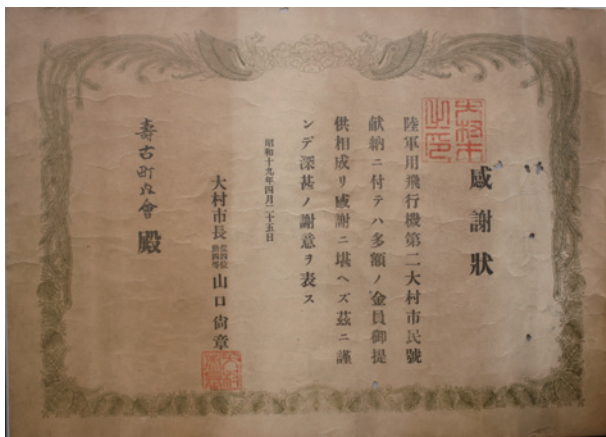 感謝狀
大村市之印
陸軍用飛行機第二大村市民號
献納ニ付テハ多額ノ金員御提
供相成リ感謝ニ堪ヘズ茲ニ謹
ンデ深甚ノ謝意ヲ表ス
昭和十九年四月二十五日
大村市長 從四位勲四等 山口尙章
壽古町内會 殿